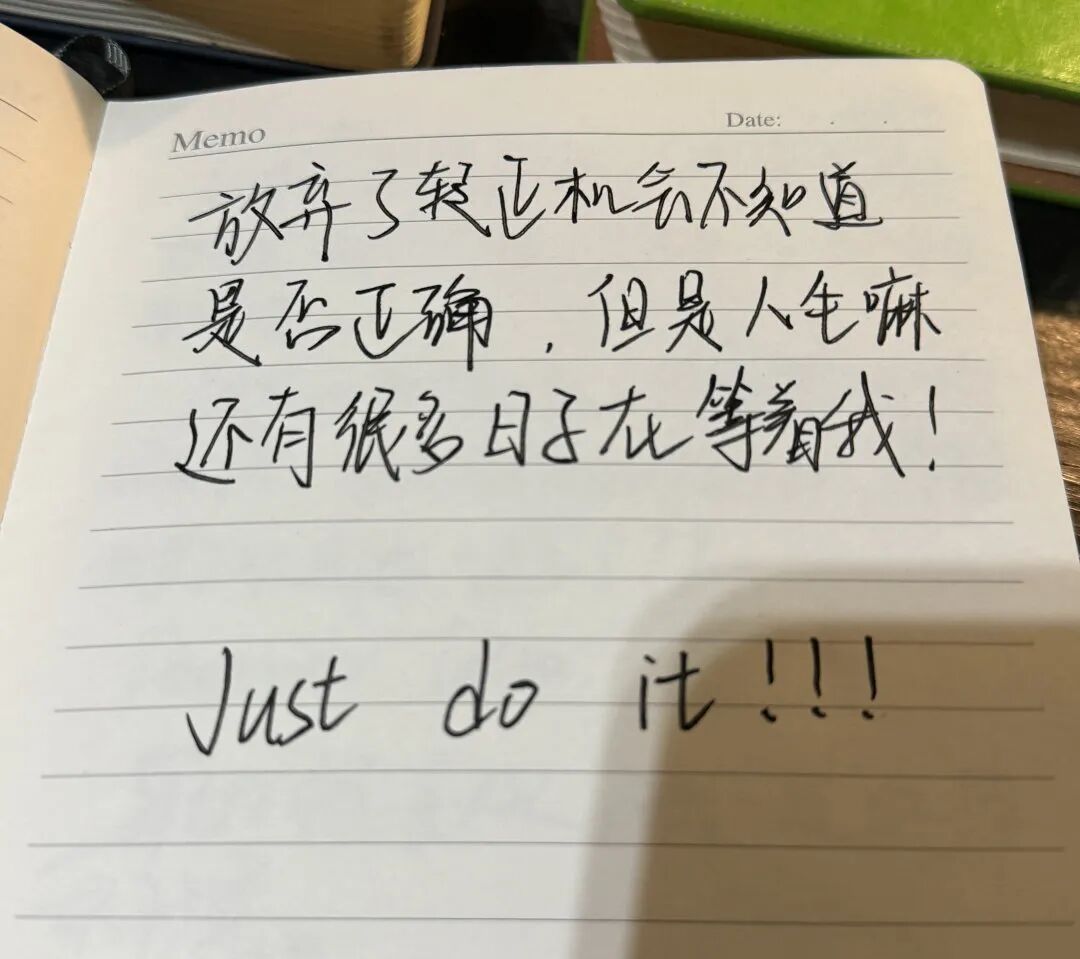 Memo
Date:
放弃了转正机会不知道
是否正确，但是人生嘛
还有很多日子在等着我！
Just do it!!!